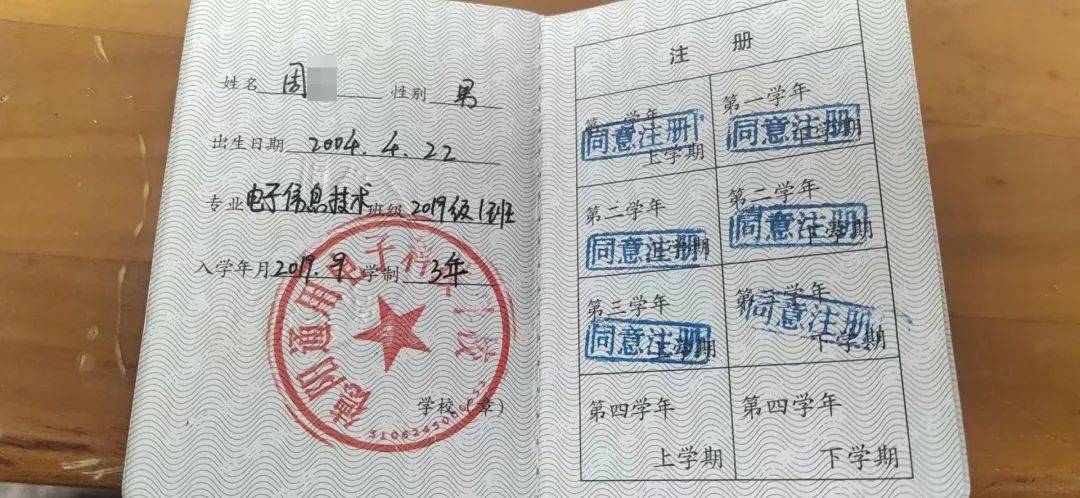 姓名 周 性别 男
出生日期 2004.4.22
专业 电子信息技术 班级 2019级1班
入学年月 2019.9 学制 3年
德阳通用电子科
学校(章)
注册
第一学年 上学期 同意注册
第一学年 下学期 同意注册
第二学年 上学期 同意注册
第二学年 下学期 同意注册
第三学年 上学期 同意注册
第三学年 下学期 同意注册
第四学年 上学期
第四学年 下学期